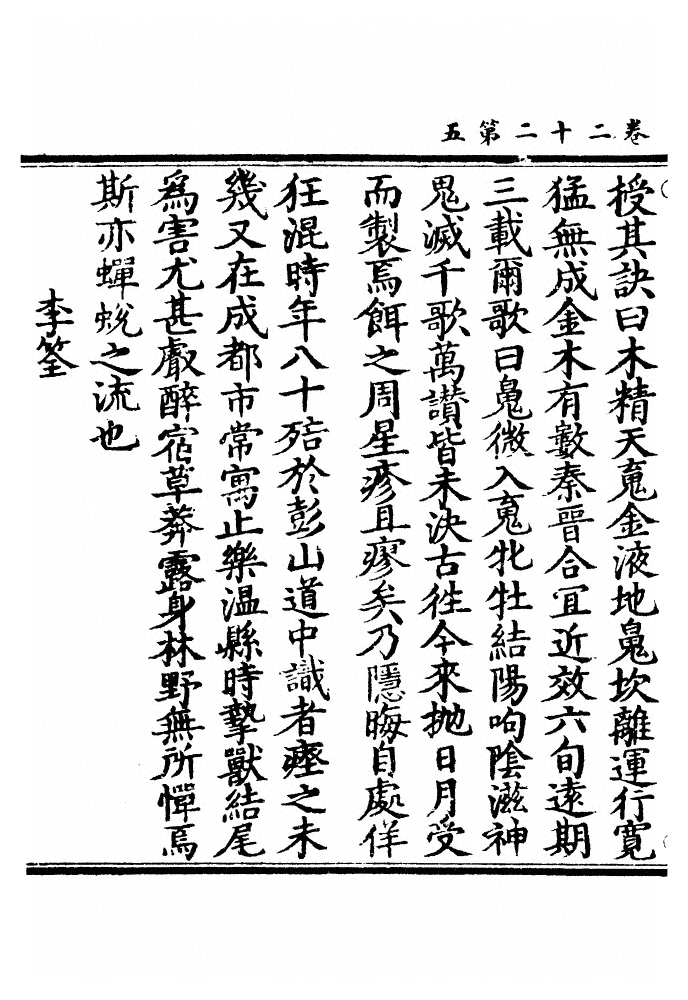 卷二十二第五
授其訣曰木精天䰟金液地鬼坎離運行寬
猛無成金木有數秦晉合宜近效六旬遠期
三載爾歌曰鬼微入䰟牝牡結陽呴陰滋神
鬼滅千歌萬讃皆未決古徃今來抛日月受
而製焉餌之周星疹且瘳矣乃隱晦自處佯
狂混時年八十殕於彭山道中識者瘞之未
幾又在成都市常寓止樂温縣時摯獸結尾
爲害尤甚㕡醉宿草莽露身林野無所憚焉
斯亦蟬蛻之流也
李筌